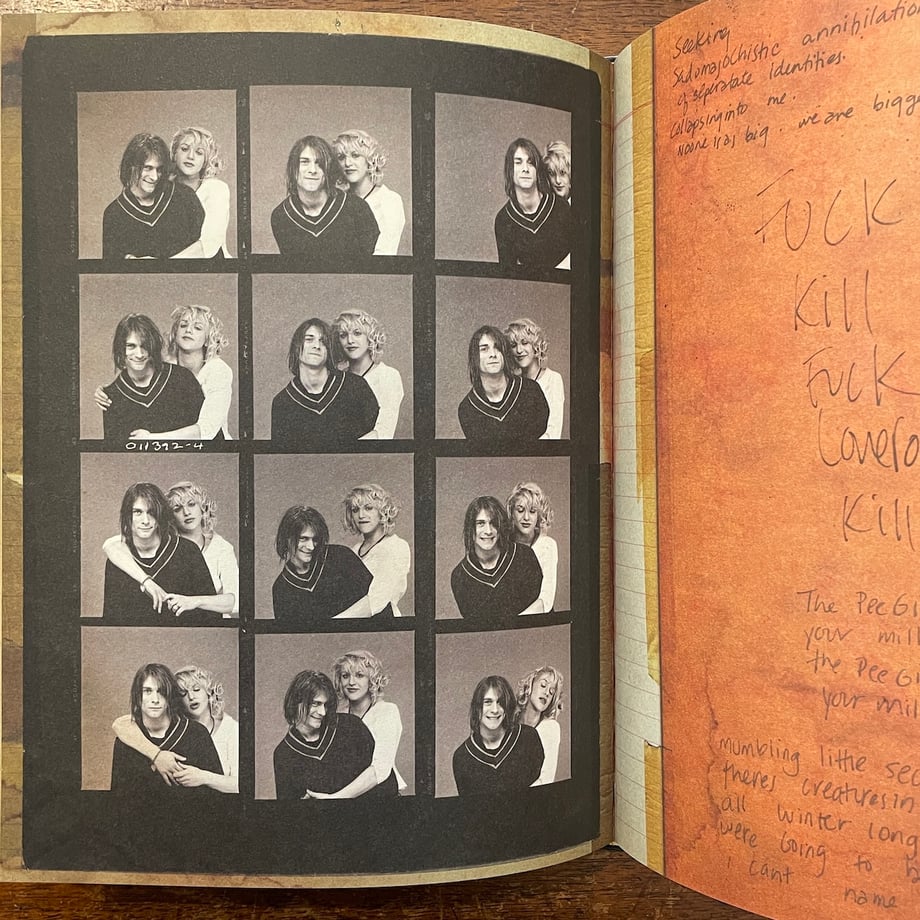 011392-4
Seeking
Sadomasochistic annihilation
of seperatate identities.
Collapsing into me.
noone is as big. we are bigge
FUCK
Kill
Fuck
Lovero
Kill
The Pee Gi
your mil
the Pee Gi
your mil
mumbling little se
theres creatures in
all winter long
were Going to b
I cant name